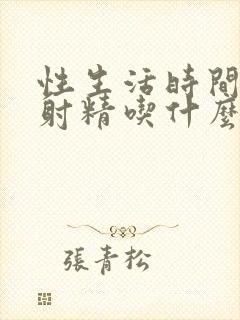 性生活時間
射精喫什麼
張青松